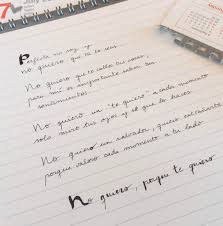 7
July
Perfecta no soy y
no quiero que tú lo seas.
No quiero que te calles tus cosas,
para mí es importante saber tus
sentimientos.
No quiero un "te quiero" a cada momento
solo, mira tus ojos y sé que lo haces
No quiero un salvador, quiero extrañarte
porque valoro cada momento a tu lado
No quiero, porque te quiero